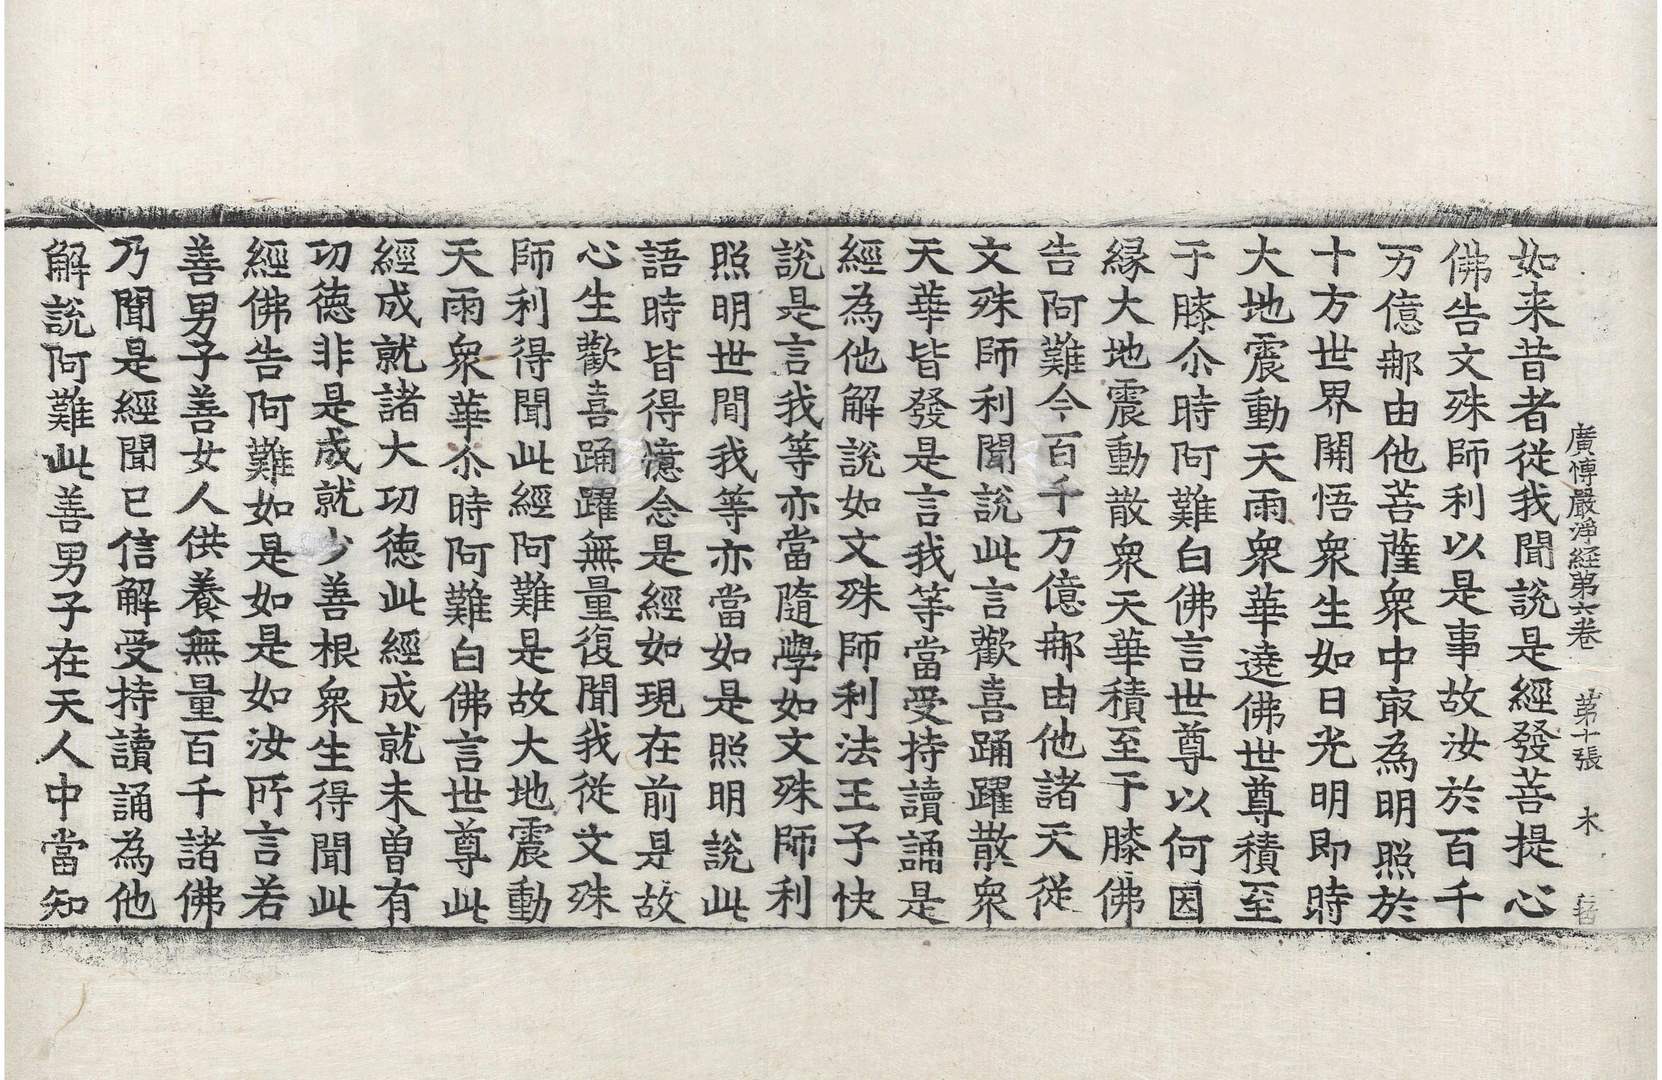 廣博嚴淨經第六卷 第十張 木
如来昔者從我聞說是經發菩提心
佛告文殊師利以是事故汝於百千
万億那由他菩薩衆中冣為明照於
十方世界開悟衆生如日光明即時
大地震動天雨衆華遶佛世尊積至
于膝尒時阿難白佛言世尊以何因
縁大地震動散衆天華積至于膝佛
告阿難今百千万億那由他諸天從
文殊師利聞說此言歡喜踊躍散衆
天華皆發是言我等當受持讀誦是
經為他解說如文殊師利法王子快
說是言我等亦當隨學如文殊師利
照明世間我等亦當如是照明說此
語時皆得憶念是經如現在前是故
心生歡喜踊躍無量復聞我從文殊
師利得聞此經阿難是故大地震動
天雨衆華尒時阿難白佛言世尊此
經成就諸大功德此經成就未曽有
功德非是成就少善根衆生得聞此
經佛告阿難如是如是如汝所言若
善男子善女人供養無量百千諸佛
乃聞是經聞已信解受持讀誦為他
解說阿難此善男子在天人中當知